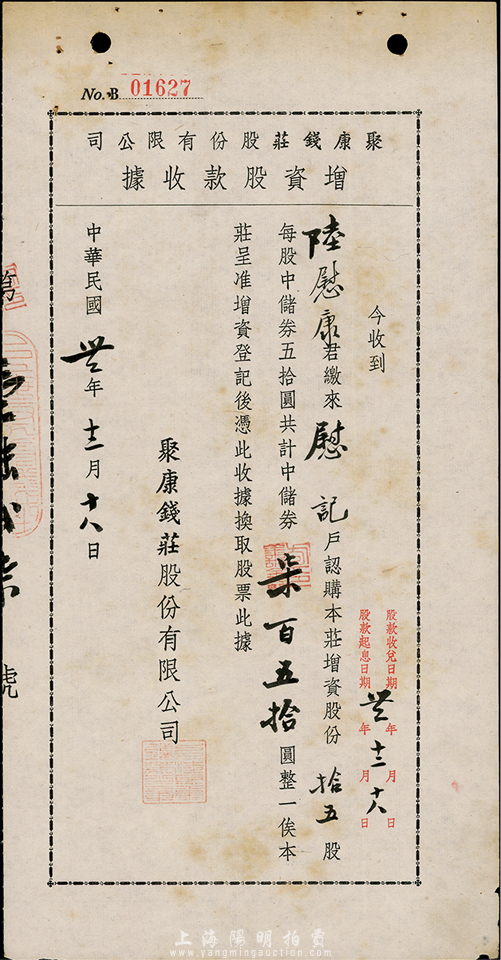 No. B 01627
聚康錢莊股份有限公司
增資股款收據
今收到
陸慰康君繳來慰記戶認購本莊增資股份拾五股
每股中儲券五拾圓共計中儲券柒百五拾圓整一俟本
莊呈准增資登記後憑此收據換取股票此據
聚康錢莊股份有限公司
中華民國卅三年十二月十八日
股款收兌日期 年 月 日
股款起息日期 卅三年十二月十八日
號
上海陽明拍賣
www.yangmingauction.com